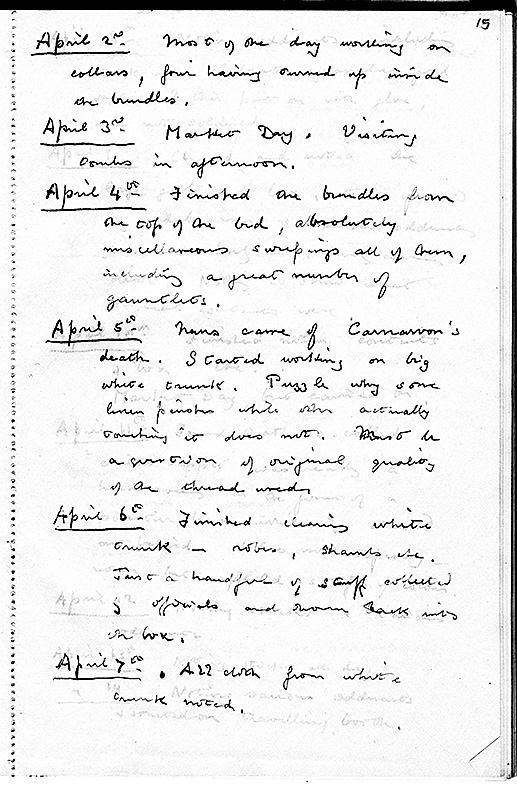 15
April 2nd. Most of the day working on
collars, four having turned up inside
the bundles.
April 3rd. Market Day. Visiting
tombs in afternoon.
April 4th Finished the bundles from
the top of the bed, absolutely
miscellaneous sweepings all of them,
including a great number of
gauntlets.
April 5th. News came of Carnarvon's
death. Started working on big
white trunk. Puzzle why some
linen perishes while other actually
touching it does not. Must be
a question of original quality
of the thread used.
April 6th. Finished clearing white
trunk – robes, shawls etc.
Just a handful of stuff collected
by officials and thrown back into
the box.
April 7th. All cloth from white
trunk noted.